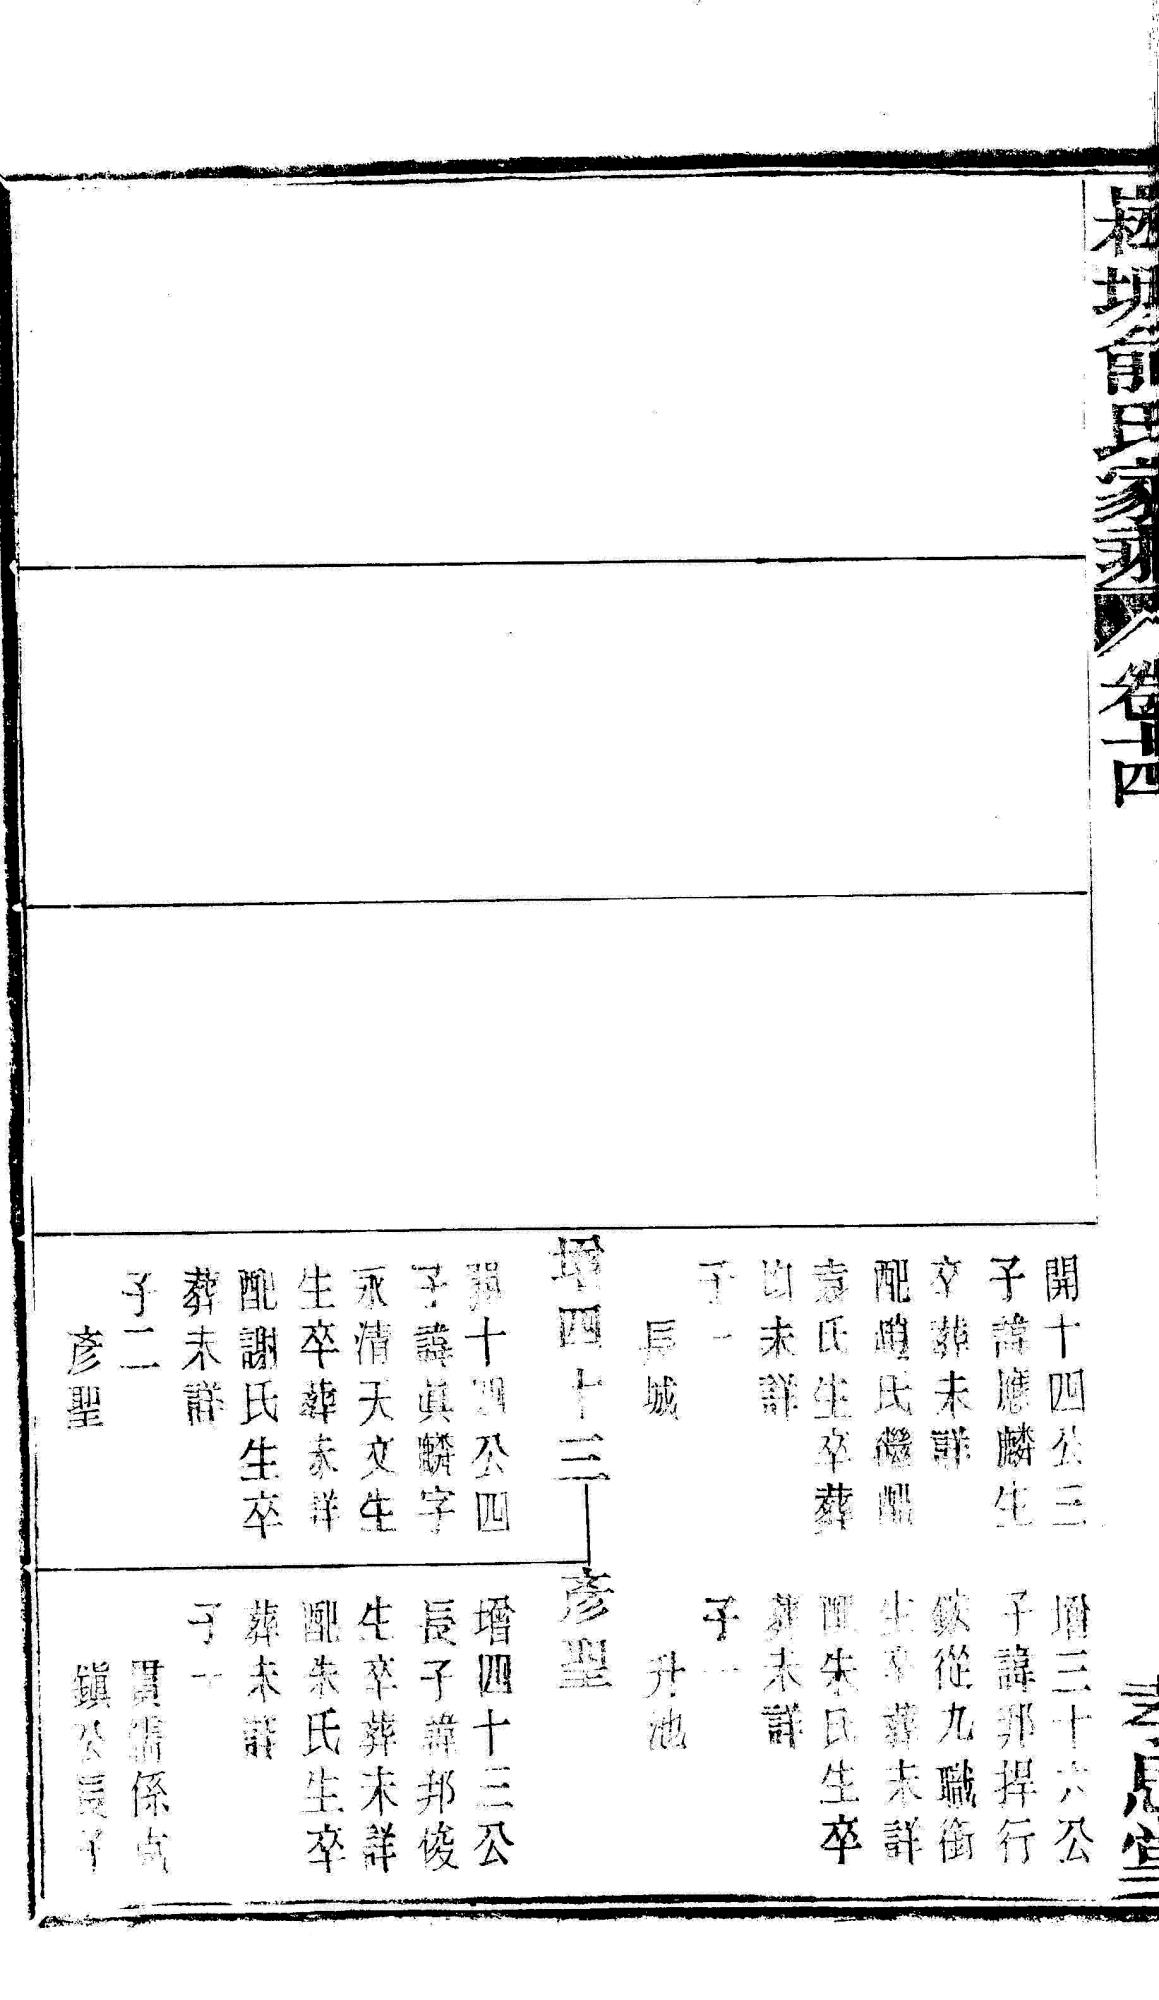 俞氏家乘
卷十四
開十四公三
子諱應麟生
卒葬未詳
配趙氏繼配
袁氏生卒葬
均未詳
子一
長城
增四十三
開十四公四
子諱眞麟字
永清天文生
生卒葬未詳
配謝氏生卒
葬未詳
子二
彥聖
增三十六公
子諱邦捍行
從九職銜
生卒葬未詳
配朱氏生卒
葬未詳
子一
升池
彥聖
增四十三公
長子諱邦俊
生卒葬未詳
配朱氏生卒
葬未詳
子一
貫儒係貞
鎭公長子
孝思堂